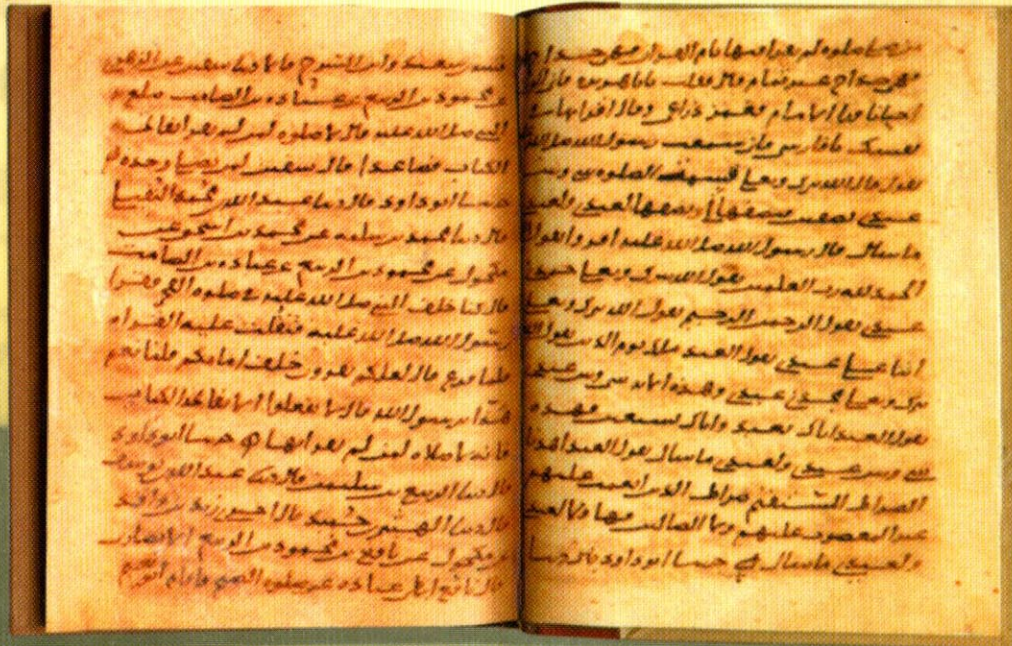 من صلى صلوة لم يقرا فيها بام القران فهي خداج
فهي خداج غير تمام قال فقلت يابا هريرة فاني
احيانا ورا الامام فغمز ذراعي وقال اقرا بها
نفسك يا فارسي فاني سمعت رسول الله صلى الله
يقول قال الله تبرك وتعلى قسمت الصلوة بيني وبين
عبدي نصفين فنصفها لي ونصفها لعبدي ولعبدي
ما سال قال رسول الله صلى الله عليه اقروا يقول
الحمد لله رب العلمين يقول الله تبرك وتعلى حمدني
عبدي يقول الرحمن الرحيم يقول الله تبرك وتعلى
اثنا علي عبدي يقول العبد ملك يوم الدين يقول الله
تبرك وتعلى مجدني عبدي وهذه الاية بيني وبين عبدي
يقول العبد اياك نعبد واياك نستعين فهذه
بيني وبين عبدي ولعبدي ما سال يقول العبد اهدنا
الصراط المستقيم صراط الذين انعمت عليهم
غير المغضوب عليهم ولا الضالين فهاولا لعبدي
ولعبدي ما سال حدثنا ابو داود قال حدثنا
قتيبة بن سعيد وابن السرح قالا حدثنا سفين عن الزهري
عن محمود بن الربيع عن عبادة بن الصامت يبلغ به
النبي صلى الله عليه قال لا صلوة لمن لم يقرا بفاتحة
الكتاب فصاعدا قال سفين لمن يصلي وحده
حدثنا ابو داود قال حدثنا عبد الله بن محمد النفيلي
قال حدثنا محمد بن سلمة عن محمد بن اسحق عن
مكحول عن محمود بن الربيع عن عبادة بن الصامت
قال كنا خلف النبي صلى الله عليه في صلوة الفجر فقرا
رسول الله صلى الله عليه فثقلت عليه القراة
فلما فرغ قال لعلكم تقرون خلف امامكم قلنا نعم
هذا يرسول الله قال لا تفعلوا الا بفاتحة الكتاب
فانه لا صلاة لمن لم يقرا بها حدثنا ابو داود
قال حدثنا الربيع بن سليمن قال حدثنا عبد الله بن يوسف
قال حدثنا الهيثم بن حميد قال اخبرني زيد بن واقد
عن مكحول عن نافع بن محمود بن الربيع الانصاري
قال نافع ابطا عبادة عن صلوة الصبح فاقام ابو نعيم